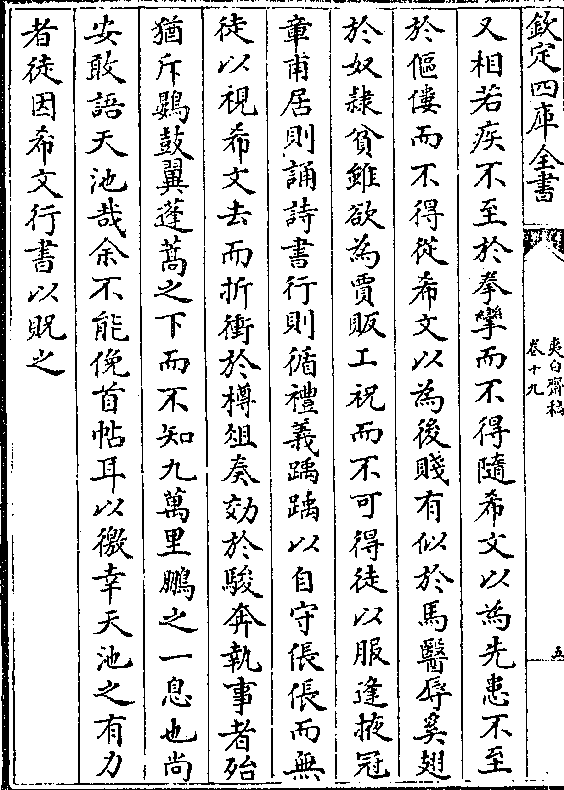 欽定四庫全書
夷白齋稿
卷十九
五
又相若疾不至於拳攣而不得隨希文以為先患不至
於傴僂而不得從希文以為後賤有似於馬醫辱奚翅
於奴隸貧雖欲為賈販工祝而不可得徒以服逢掖冠
章甫居則誦詩書行則循禮義踽踽以自守倀倀而無
徒以視希文去而折衝於樽俎奏効於駿奔執事者殆
猶斥鷃鼓翼蓬蒿之下而不知九萬里鵬之一息也尚
安敢語天池哉余不能俛首帖耳以徼幸天池之有力
者徒因希文行書以貺之